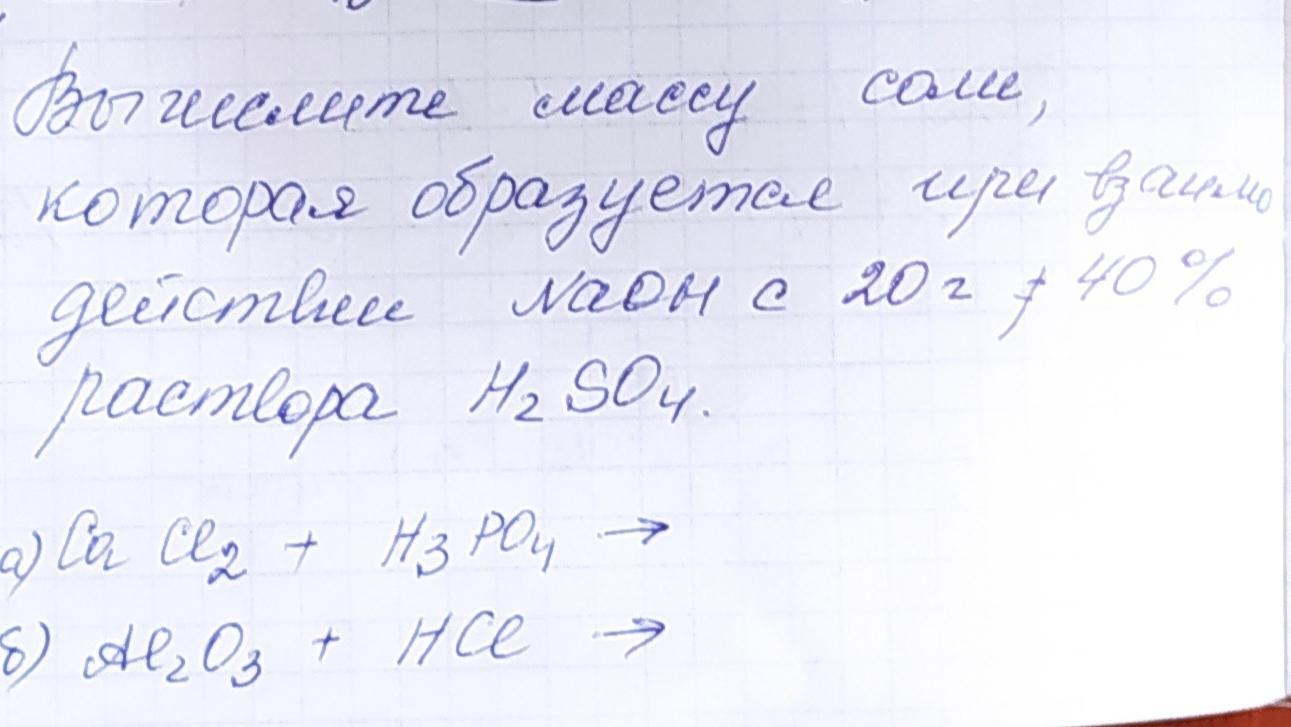 Вычислите массу соли,
которая образуется при взаимо
действии NaOH с 20 г 40 %
раствора H₂SO₄.
а) CaCl₂ + H₃PO₄ →
б) Al₂O₃ + HCl →